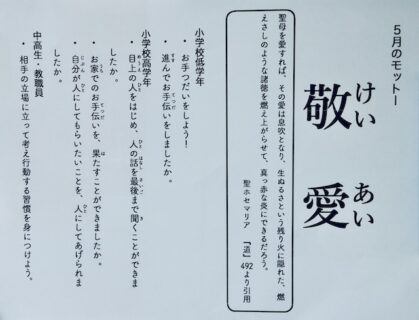 5月のモットー
敬愛
けい あい
聖母を愛すれば、その愛は息吹となり、生ぬるさという残り火に隠れた、燃
えさしのような諸徳を燃え上がらせて、真っ赤な炎にできるだろう。
聖ホセマリア 『道』492より引用
小学校低学年
・お手つだいをしよう！
・進んでお手伝いをしましたか。
小学校高学年
・目上の人をはじめ、人の話を最後まで聞くことができま
したか。
・お家でのお手伝いを、果たすことができましたか。
・自分が人にしてもらいたいことを、人にしてあげられま
したか。
中高生・教職員
・相手の立場に立って考え行動する習慣を身につけよう。